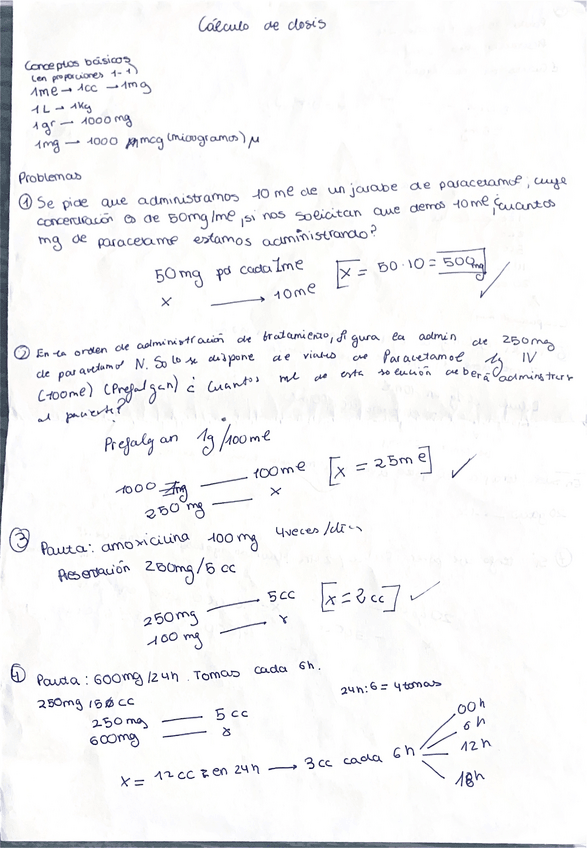 Cálculo de dosis
Conceptos básicos
(en proporciones 1-1)
1ml → 1cc → 1mg
1L → 1Kg
1gr → 1000mg
1mg → 1000 mcg (microgramos) μ
Problemas
① Se pide que administramos 10 ml de un jarabe de paracetamol, cuya
concentración es de 50mg/ml, si nos solicitan que demos 10ml ¿cuantos
mg de paracetamol estamos administrando?
50mg por cada 1ml [x = 50·10 = 500mg
x → 10ml
② En la orden de administración de tratamiento, figura la admin de 250mg
de paracetamol IV. Solo se dispone de viales de Paracetamol 1g IV
(100ml) (Prefalgan) ¿ Cuantos ml de esta solución deberá administrar
al paciente?
Prefalgan 1g/100ml
1000 mg — 100ml [x = 25ml]
250 mg — x
③ Pauta: amoxicilina 100mg 4veces/día
Presentación 250mg/5 cc
250mg — 5cc [x = 2cc]
100 mg — x
④ Pauta: 600mg/24h. Tomas cada 6h.
250mg/5 cc 24h:6 = 4tomas
250mg — 5 cc
600mg — x
x = 12cc en 24h → 3cc cada 6h
00h
6h
12h
18h